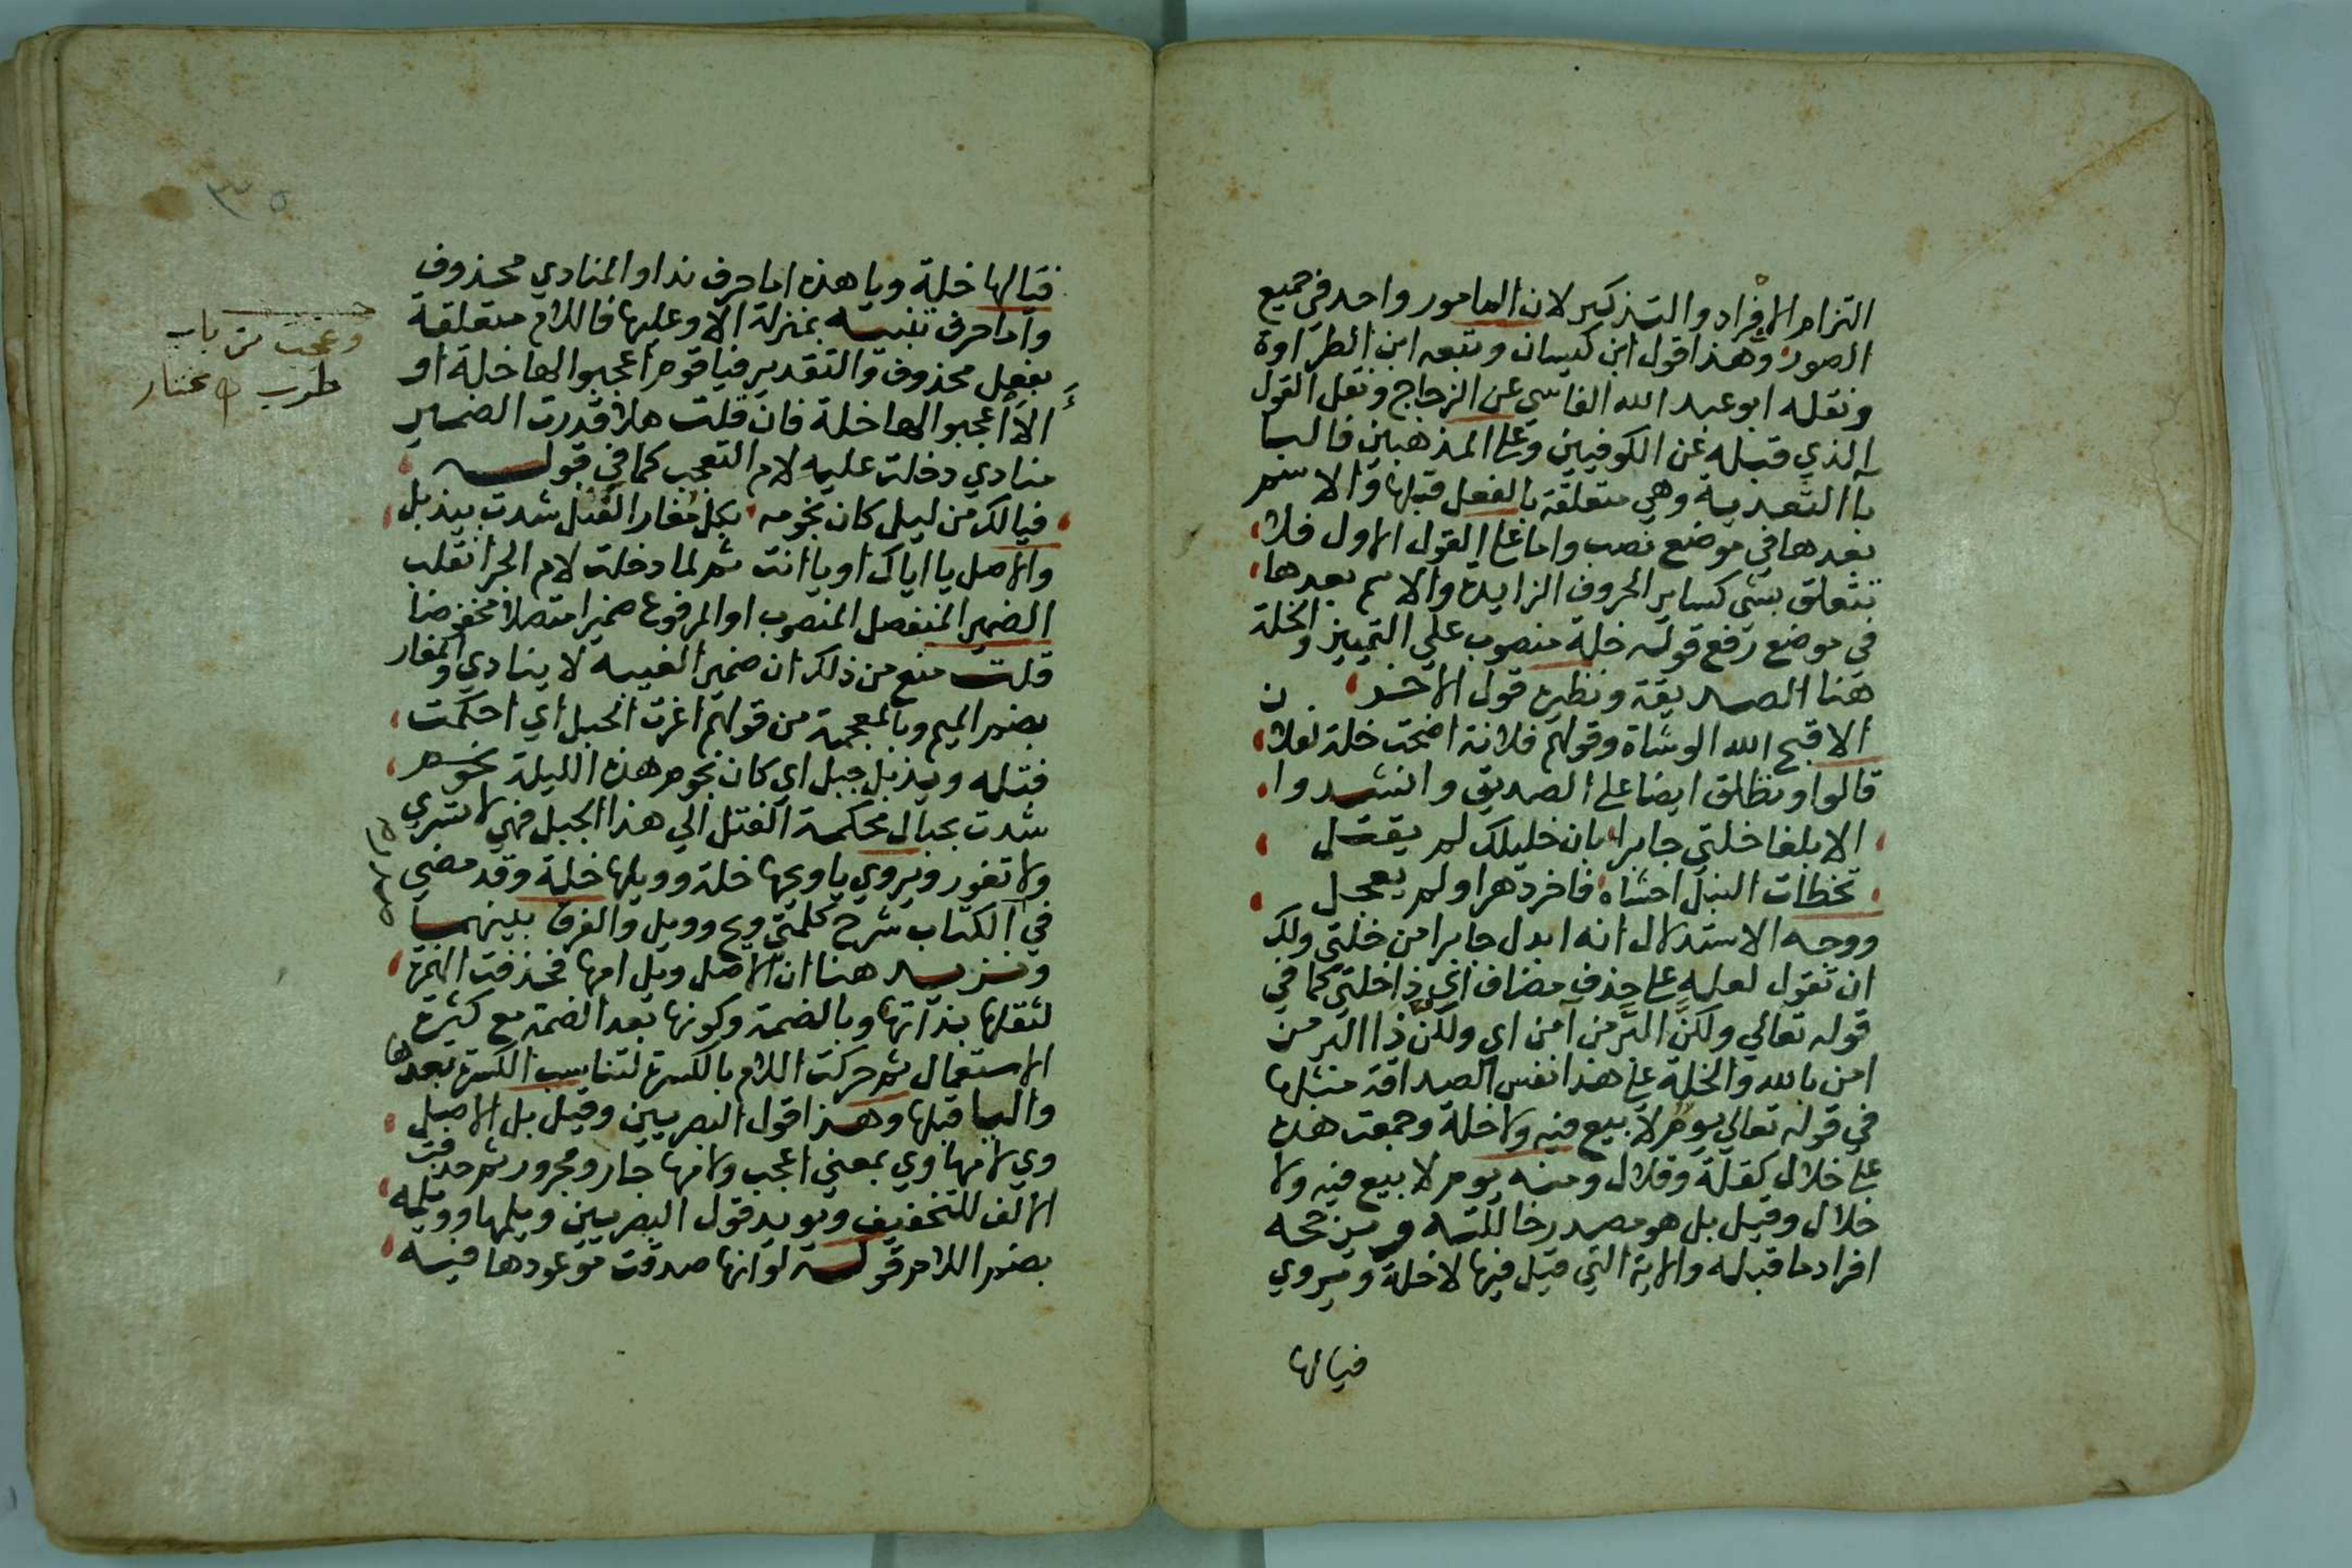 التزام الافراد والتذكير لان المامور واحد في جميع
الصور وهذا قول ابن كيسان وتبعه ابن الطراوة
ونقله ابو عبد الله الفاسي عن الزجاج ونقل القول
الذي قبله عن الكوفيين وعلى المذهبين فالبا
باالتعدية وهي متعلقة بالفعل قبلها والاسم
بعدها في موضع نصب واما على القول الاول فلا
تتعلق بشي كساير الحروف الزايدة والاسم بعدها
في موضع رفع قوله خلة منصوب على التمييز والخلة
هنا الصديقة ونظيره قول الاخر
الا قبح الله الوشاة وقولهم فلانة اضحت خلة لفلان
قالوا ويطلق ايضا على الصديق وانشدوا
الا بلغا خلتي جابرا بان خليلك لم يقتل
تخطات النبل احشاه فاخر دهرا ولم يعجل
ووجه الاستدلال انه ابدل جابرا من خلتي ولك
ان تقول لعله على حذف مضاف اي ذا خلتي كما في
قوله تعالي ولكن البر من آمن اي ولكن ذا البر من
امن بالله والخلة على هذا نفس الصداقة مثلها
في قوله تعالي يوم لا بيع فيه ولا خلة وجمعت هذه
على خلال كقلة وقلال ومنه يوم لا بيع فيه ولا
خلال وقيل بل هو مصدر خاللته ويرجحه
افراد ما قبله والاية التي قيل فيها لا خلة ويروي
فيالها
٣٥
فيالها خلة ويا هذه اما حرف ندا والمنادي محذوف
واما حرف تنبيه بمنزلة الا وعليها فاللام متعلقة
بفعل محذوف والتقدير فيا قوم اعجبوا لها خلة او
الا اعجبوا لها خلة فان قلت هلا قدرت الضمير
منادي دخلت عليه لام التعجب كما في قوله
فيالك من ليل كان نجومه بكل مغار الفتل شدت بيذبل
والاصل يا اياك او يا انت ثم لما دخلت لام الجر انقلب
الضمير المنفصل المنصوب او المرفوع ضميرا متصلا مخفوضا
قلت منع من ذلك ان ضمير الغيبه لا ينادي والمغار
بضم الميم وبالمعجمة من قولهم اغرت الحبل اي احكمت
فتله ويذبل جبل اي كان نجوم هذه الليلة نجوم
شدت بحبال محكمة الفتل الي هذا الجبل فهي لا تسري
ولا تغور ويروي يا ويحها خلة وويلها خلة وقد مضي
في الكتاب شرح كلمتي ويح وويل والفرق بينهما
ونزيد هنا ان الاصل ويل امها فحذفت الهمزة
لثقلها بذاتها وبالضمة وكونها بعد الضمة مع كثرة
الاستعمال ثم حركت اللام بالكسرة لتناسب الكسرة بعدها
واليا قبلها وهذا قول البصريين وقيل بل الاصل
وي لامها وي بمعني اعجب ولامها جار ومجرور ثم حذفت
الالف للتخفيف ويويد قول البصريين ويلمها وويلمه
بضم اللام قوله لو انها صدقت موعودها فيه
وعجب من باب
طرب مختار